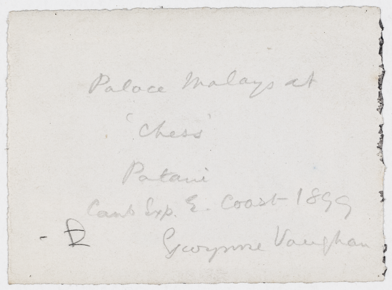 Palace Malays at
'Chess'
Patani
Camb Exp. E. Coast 1899
Gwynne Vaughan